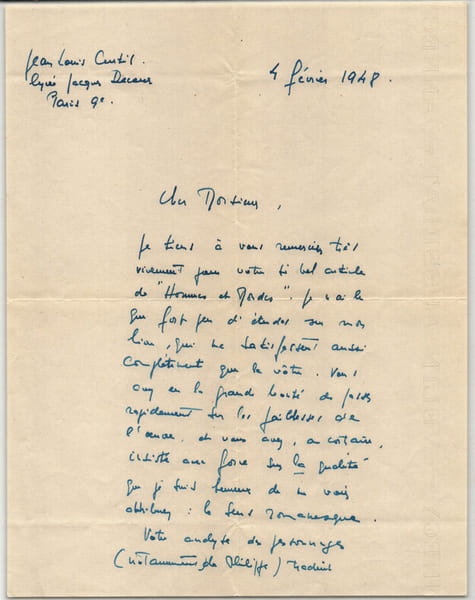 Jean Louis Curtis.
lycée Jacques Decour
Paris 9e.
4 février 1948.
Cher Monsieur,
Je tiens à vous remercier très
vivement pour votre si bel article
de "Hommes et Mondes". Je n'ai lu
que fort peu d'études sur mon
livre, qui me satisfassent aussi
complètement que la vôtre. Vous
avez eu la grande bonté de passer
rapidement sur les faiblesses de
l'œuvre, et vous avez, au contraire,
insisté avec force sur la qualité
que je suis heureux de me voir
attribuer : le sens romanesque.
Votre analyse des personnages
(notamment, de Philippe) traduit